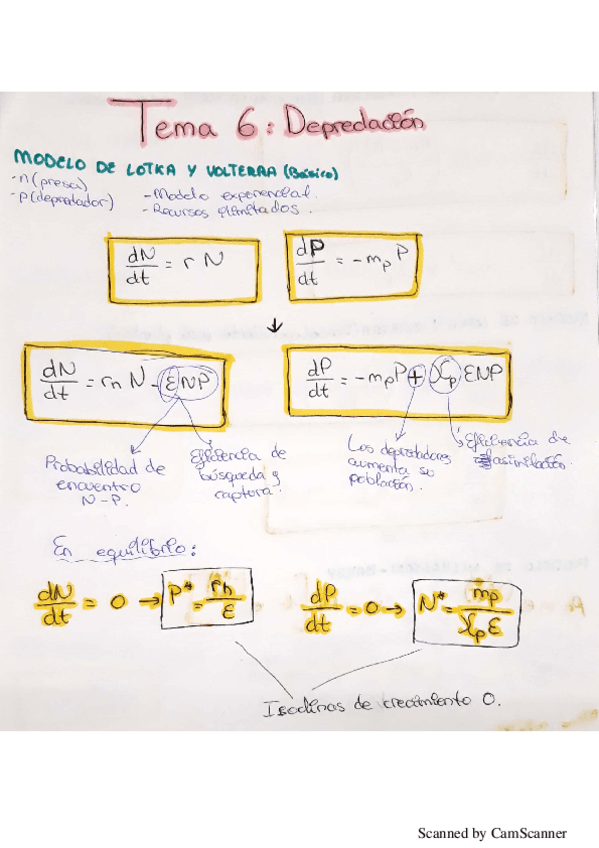 Tema 6: Depredación
MODELO DE LOTKA Y VOLTERRA (Básico)
- n (presa)
- p (depredador)
- Modelo exponencial.
- Recursos ilimitados.
dN/dt = r N
dP/dt = -mp P
↓
dN/dt = rn N - ƐNP
dP/dt = -mp P + χp ƐNP
Probabilidad de encuentro N-P.
Eficiencia de búsqueda y captura.
Los depredadores aumenta su población.
Eficiencia de asimilación.
En equilibrio:
dN/dt = 0 → P* = rn/Ɛ
dP/dt = 0 → N* = mp/χpƐ
Isoclinas de crecimiento 0.
Scanned by CamScanner